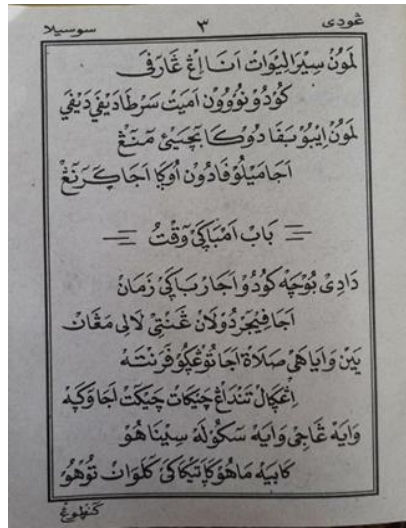 ڠودى ٣ سوسيلا
لَمَوْن سِيْرَا لِيْوَاتْ اَنَا اِڠْ ڠَارَفَىْ
كُوْدُوْ نُوْوُوْن اَمِيْتْ سَرْطَا دَيْفَىْ دَيْفَىْ
لَمَوْن اِيْبُوْ بَفَا دُوْكَا بَچِيْئ مَنَڠْ
اَجَا مَيْلُوْ فَادُوْن اُوْكَا اَجَا كَرَنَڠْ
بَابْ اَمْبَاكِىْ وَقْتُ
دَادِىْ بُوْچَهْ كُوْدُوْ اَجَارْ بَاكِىْ زَمَانْ
اَجَا فِيْجَرْ دُوْلَانْ ڠَنْتِىْ لَالِىْ مَڠَانْ
يَيْن وَايَاهَىْ صَلَاةْ اَجَا تُوْڠْكُوْ فَرَنْتَهْ
اِڠْكَالْ تَنْدَاڠْ چَيْكَاتْ چَيْكَتْ اَجَا وَكَهْ
وَايَهْ ڠَاجِىْ وَايَهْ سَكُوْلَهْ سِيْنَاهُوْ
كَابَيْهْ مَاهُوْ كَاتَيْكَاكَىْ كَلَوَانْ تُوْهُوْ